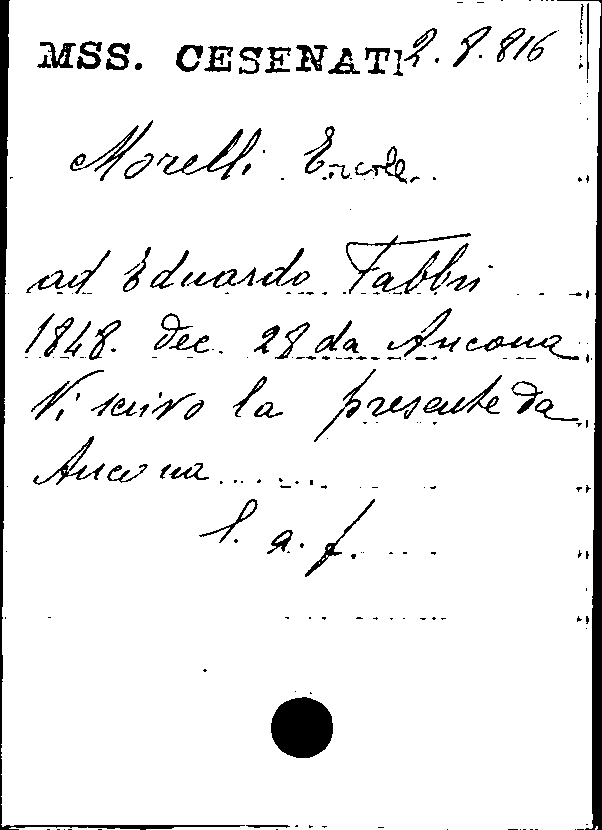 MSS. CESENATI 2.8.816
Morelli Ercole
ad Eduardo Fabbri
1848. Dec. 28 da Ancona
Vi scrivo la presente da
Ancona ........
l. a. f.